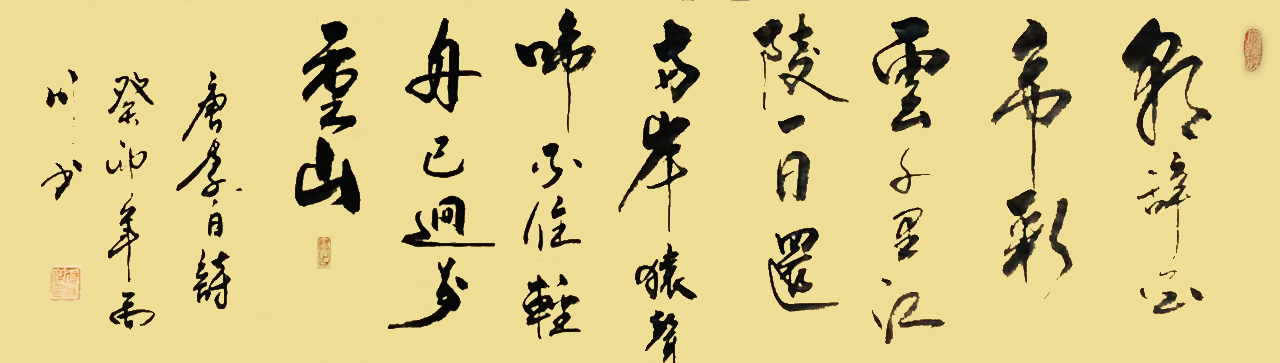 朝辞白
帝彩
雲千里江
陵一日還
两岸猿聲
啼不住輕
舟已過万
重山
唐李白詩
癸卯年雨
川书